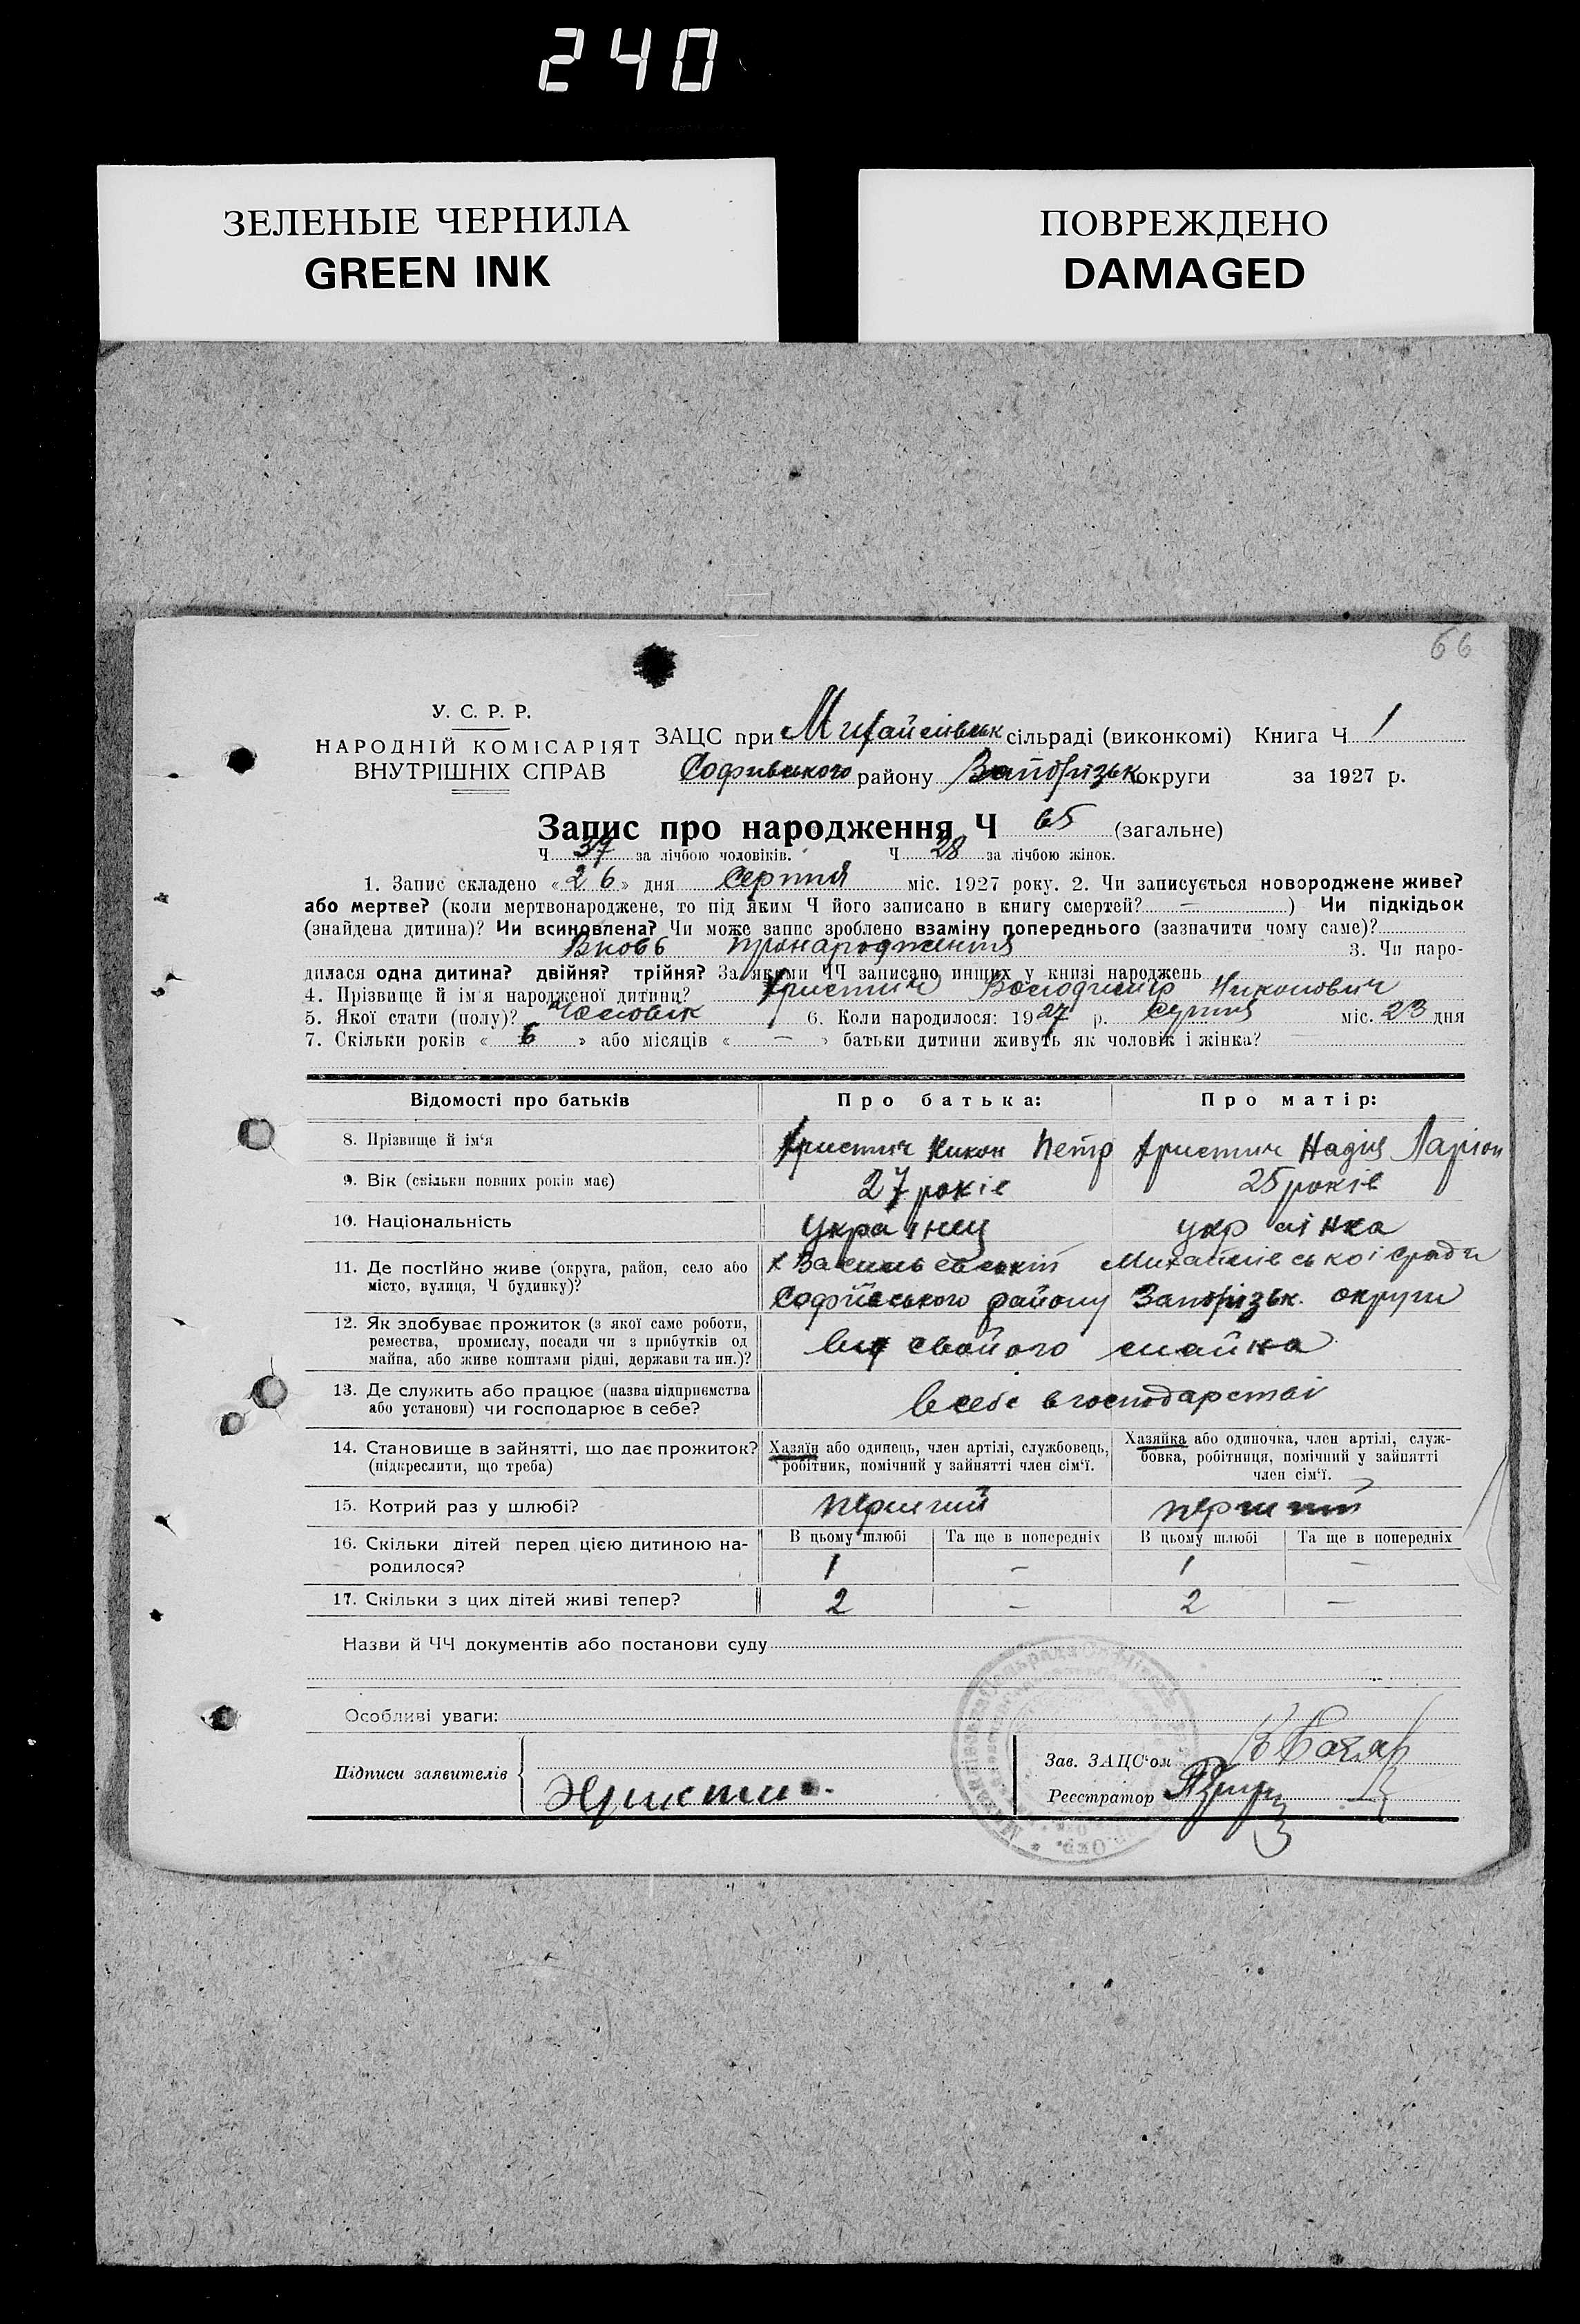 240
ЗЕЛЕНЫЕ ЧЕРНИЛА
GREEN INK
ПОВРЕЖДЕНО
DAMAGED
66
У. С. Р. Р.
НАРОДНІЙ КОМІСАРІЯТ
ВНУТРІШНІХ СПРАВ
ЗАЦС при Михайлівськ сільраді (виконкомі) Книга Ч 1
Софиівського району Запорізьк округи за 1927 р.
Запис про народження Ч 65 (загальне)
Ч 37 за лічбою чоловіків. Ч 28 за лічбою жінок.
1. Запис складено «26» дня Серпня міс. 1927 року. 2. Чи записується новороджене живе?
або мертве? (коли мертвонароджене, то під яким Ч його записано в книгу смертей? — ) Чи підкідьок
(знайдена дитина)? Чи всиновлена? Чи може запис зроблено взаміну попереднього (зазначити чому саме)?
Вновь пронародження 3. Чи наро-
дилася одна дитина? двійня? трійня? За якими ЧЧ записано инших у книзі народжень
4. Прізвище й ім'я народженої дитини? Христич Володимір Никонович
5. Якої стати (полу)? Чоловік 6. Коли народилося: 1927 р. серпня міс. 23 дня
7. Скільки років « 6 » або місяців « — » батьки дитини живуть як чоловік і жінка?
Відомості про батьків Про батька: Про матір:
8. Прізвище й ім'я Христич Никон Петр Христич Надія Ларіон
9. Вік (скільки повних років має) 27 років 25 років
10. Національність Українец українка
11. Де постійно живе (округа, район, село або місто, вулиця, Ч будинку)? х Васильевській Михайлівської сради
Софіївського району Запорізьк. округи
12. Як здобуває прожиток (з якої саме роботи, ремества, промислу, посади чи з прибутків од майна, або живе коштами рідні, держави та ин.)? від свойого майна
13. Де служить або працює (назва підприємства або установи) чи господарює в себе? в себе в господарстві
14. Становище в зайнятті, що дає прожиток? (підкреслити, що треба) Хазяїн або одинець, член артілі, службовець, робітник, помічний у зайнятті член сім'ї. Хазяйка або одиночка, член артілі, служ-бовка, робітниця, помічний у зайнятті член сім'ї.
15. Котрий раз у шлюбі? перший перший
16. Скільки дітей перед цією дитиною на-родилося? В цьому шлюбі Та ще в попередніх В цьому шлюбі Та ще в попередніх
1 — 1 —
17. Скільки з цих дітей живі тепер? 2 — 2 —
Назви й ЧЧ документів або постанови суду
Особливі уваги:
Підписи заявителів Христич
Зав. ЗАЦС'ом
Реєстратор